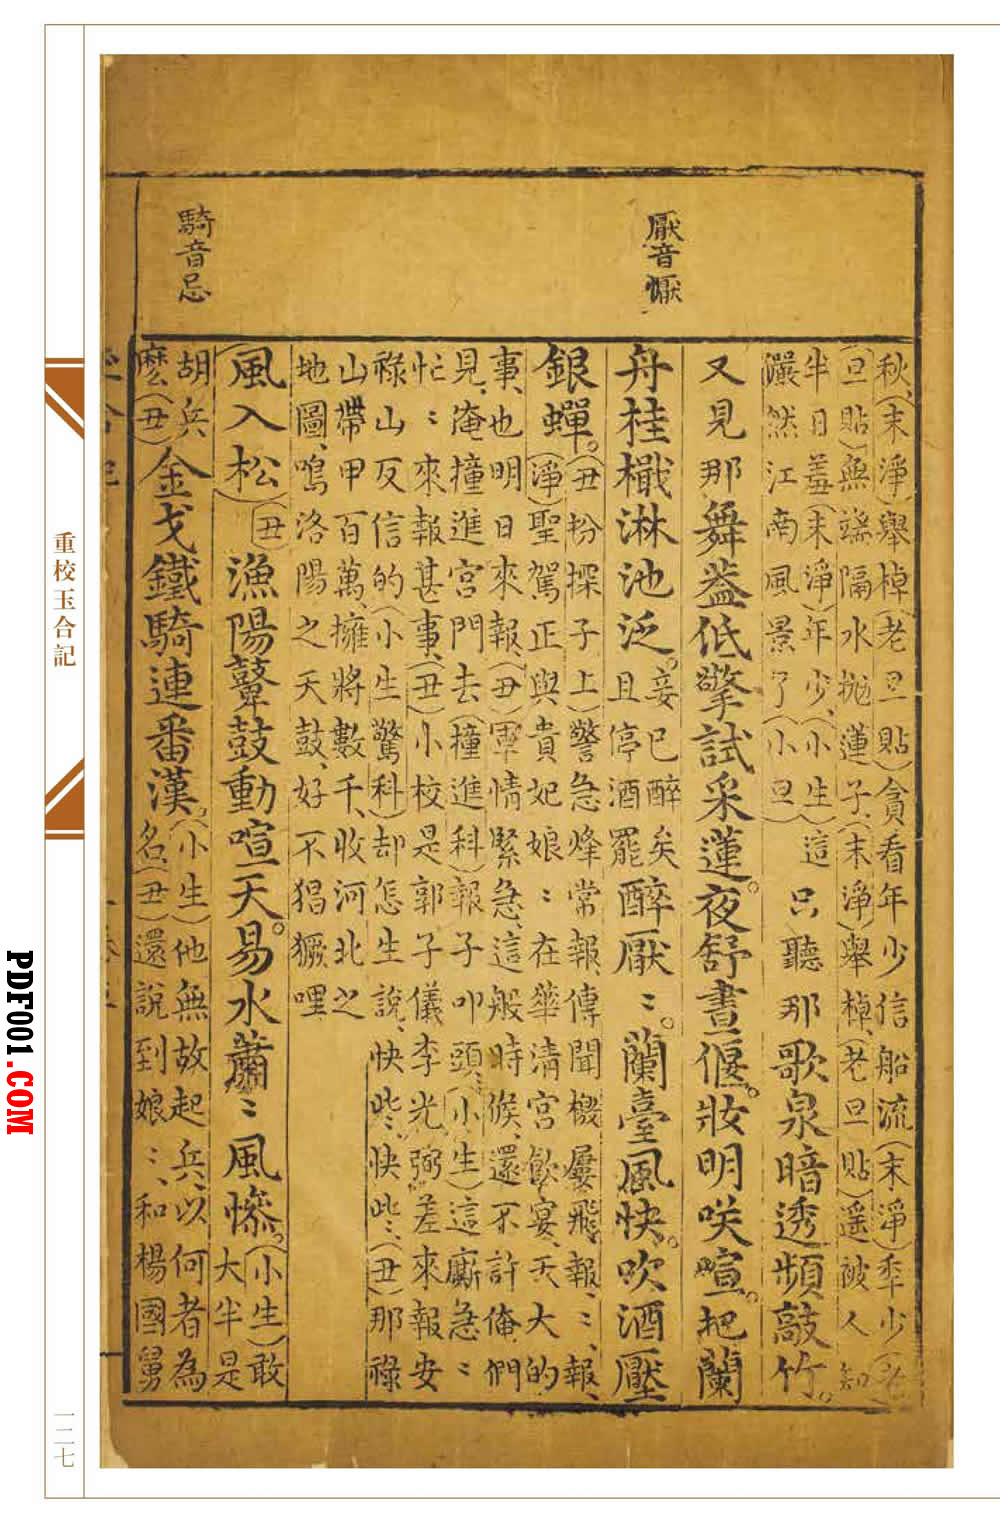 厭音懨
騎音忌
秋(末淨舉棹)(老旦貼)貪看年少信船流(末淨)年少(老
旦貼)無端隔水拋蓮子(末淨)舉棹(老旦貼)遥被人知
半日羞(末淨)年少(小生)這
儼然江南風景了(小旦)
只聽那歌泉暗透頻敲竹
又見那舞葢低擎試采蓮夜舒晝偃妝明咲喧把蘭
舟桂檝淋池泛且停酒罷妾已醉矣醉厭〻蘭臺風快吹酒壓
銀蟬(丑扮探子上)警急烽常報傳聞檄屢飛報〻報
(淨)聖駕正與貴妃娘〻在華清宮飲宴天大的
事也明日來報(丑)軍情緊急這般時候還不許俺們
見俺撞進宮門去(撞進科)報子叩頭(小生)這廝急〻
忙〻來報甚事(丑)小校是郭子儀李光弼差來報安
祿山反信的(小生驚科)却怎生說快些快些(丑)那祿
山帶甲百萬擁將數千收河北之
地圖鳴洛陽之天鼓好不猖獗哩
風入松(丑)漁陽鼙鼓動喧天易水蕭〻風慘(小生)敢
大半是
胡兵
麽(丑)金戈鐵騎連番漢(小生)他無故起兵以何者為
名(丑)還說到娘〻和楊國舅
重校玉合記
一二七
PDF001.COM